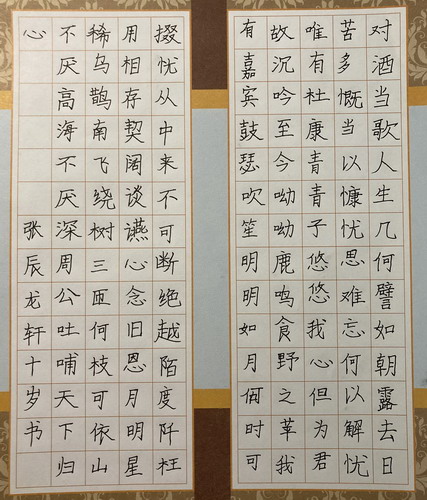 对酒当歌人生几何譬如朝露去日
苦多慨当以慷忧思难忘何以解忧
唯有杜康青青子悠悠我心但为君
故沉吟至今呦呦鹿鸣食野之苹我
有嘉宾鼓瑟吹笙明明如月何时可
掇忧从中来不可断绝越陌度阡枉
用相存契阔谈讌心念旧恩月明星
稀乌鹊南飞绕树三匝何枝可依山
不厌高海不厌深周公吐哺天下归
心 张辰龙轩十岁书